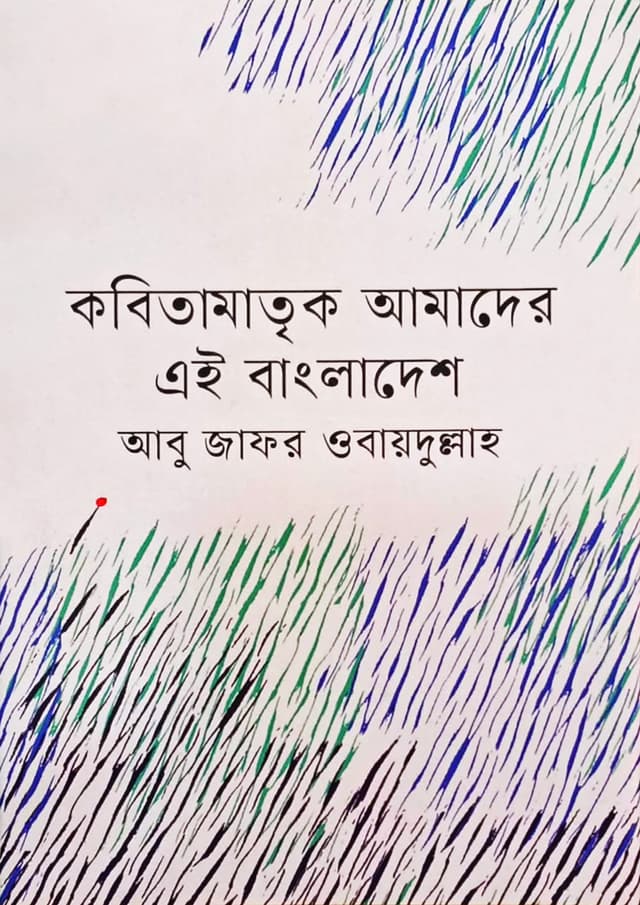 কবিতামাতৃক আমাদের
এই বাংলাদেশ
আবু জাফর ওবায়দুল্লাহ